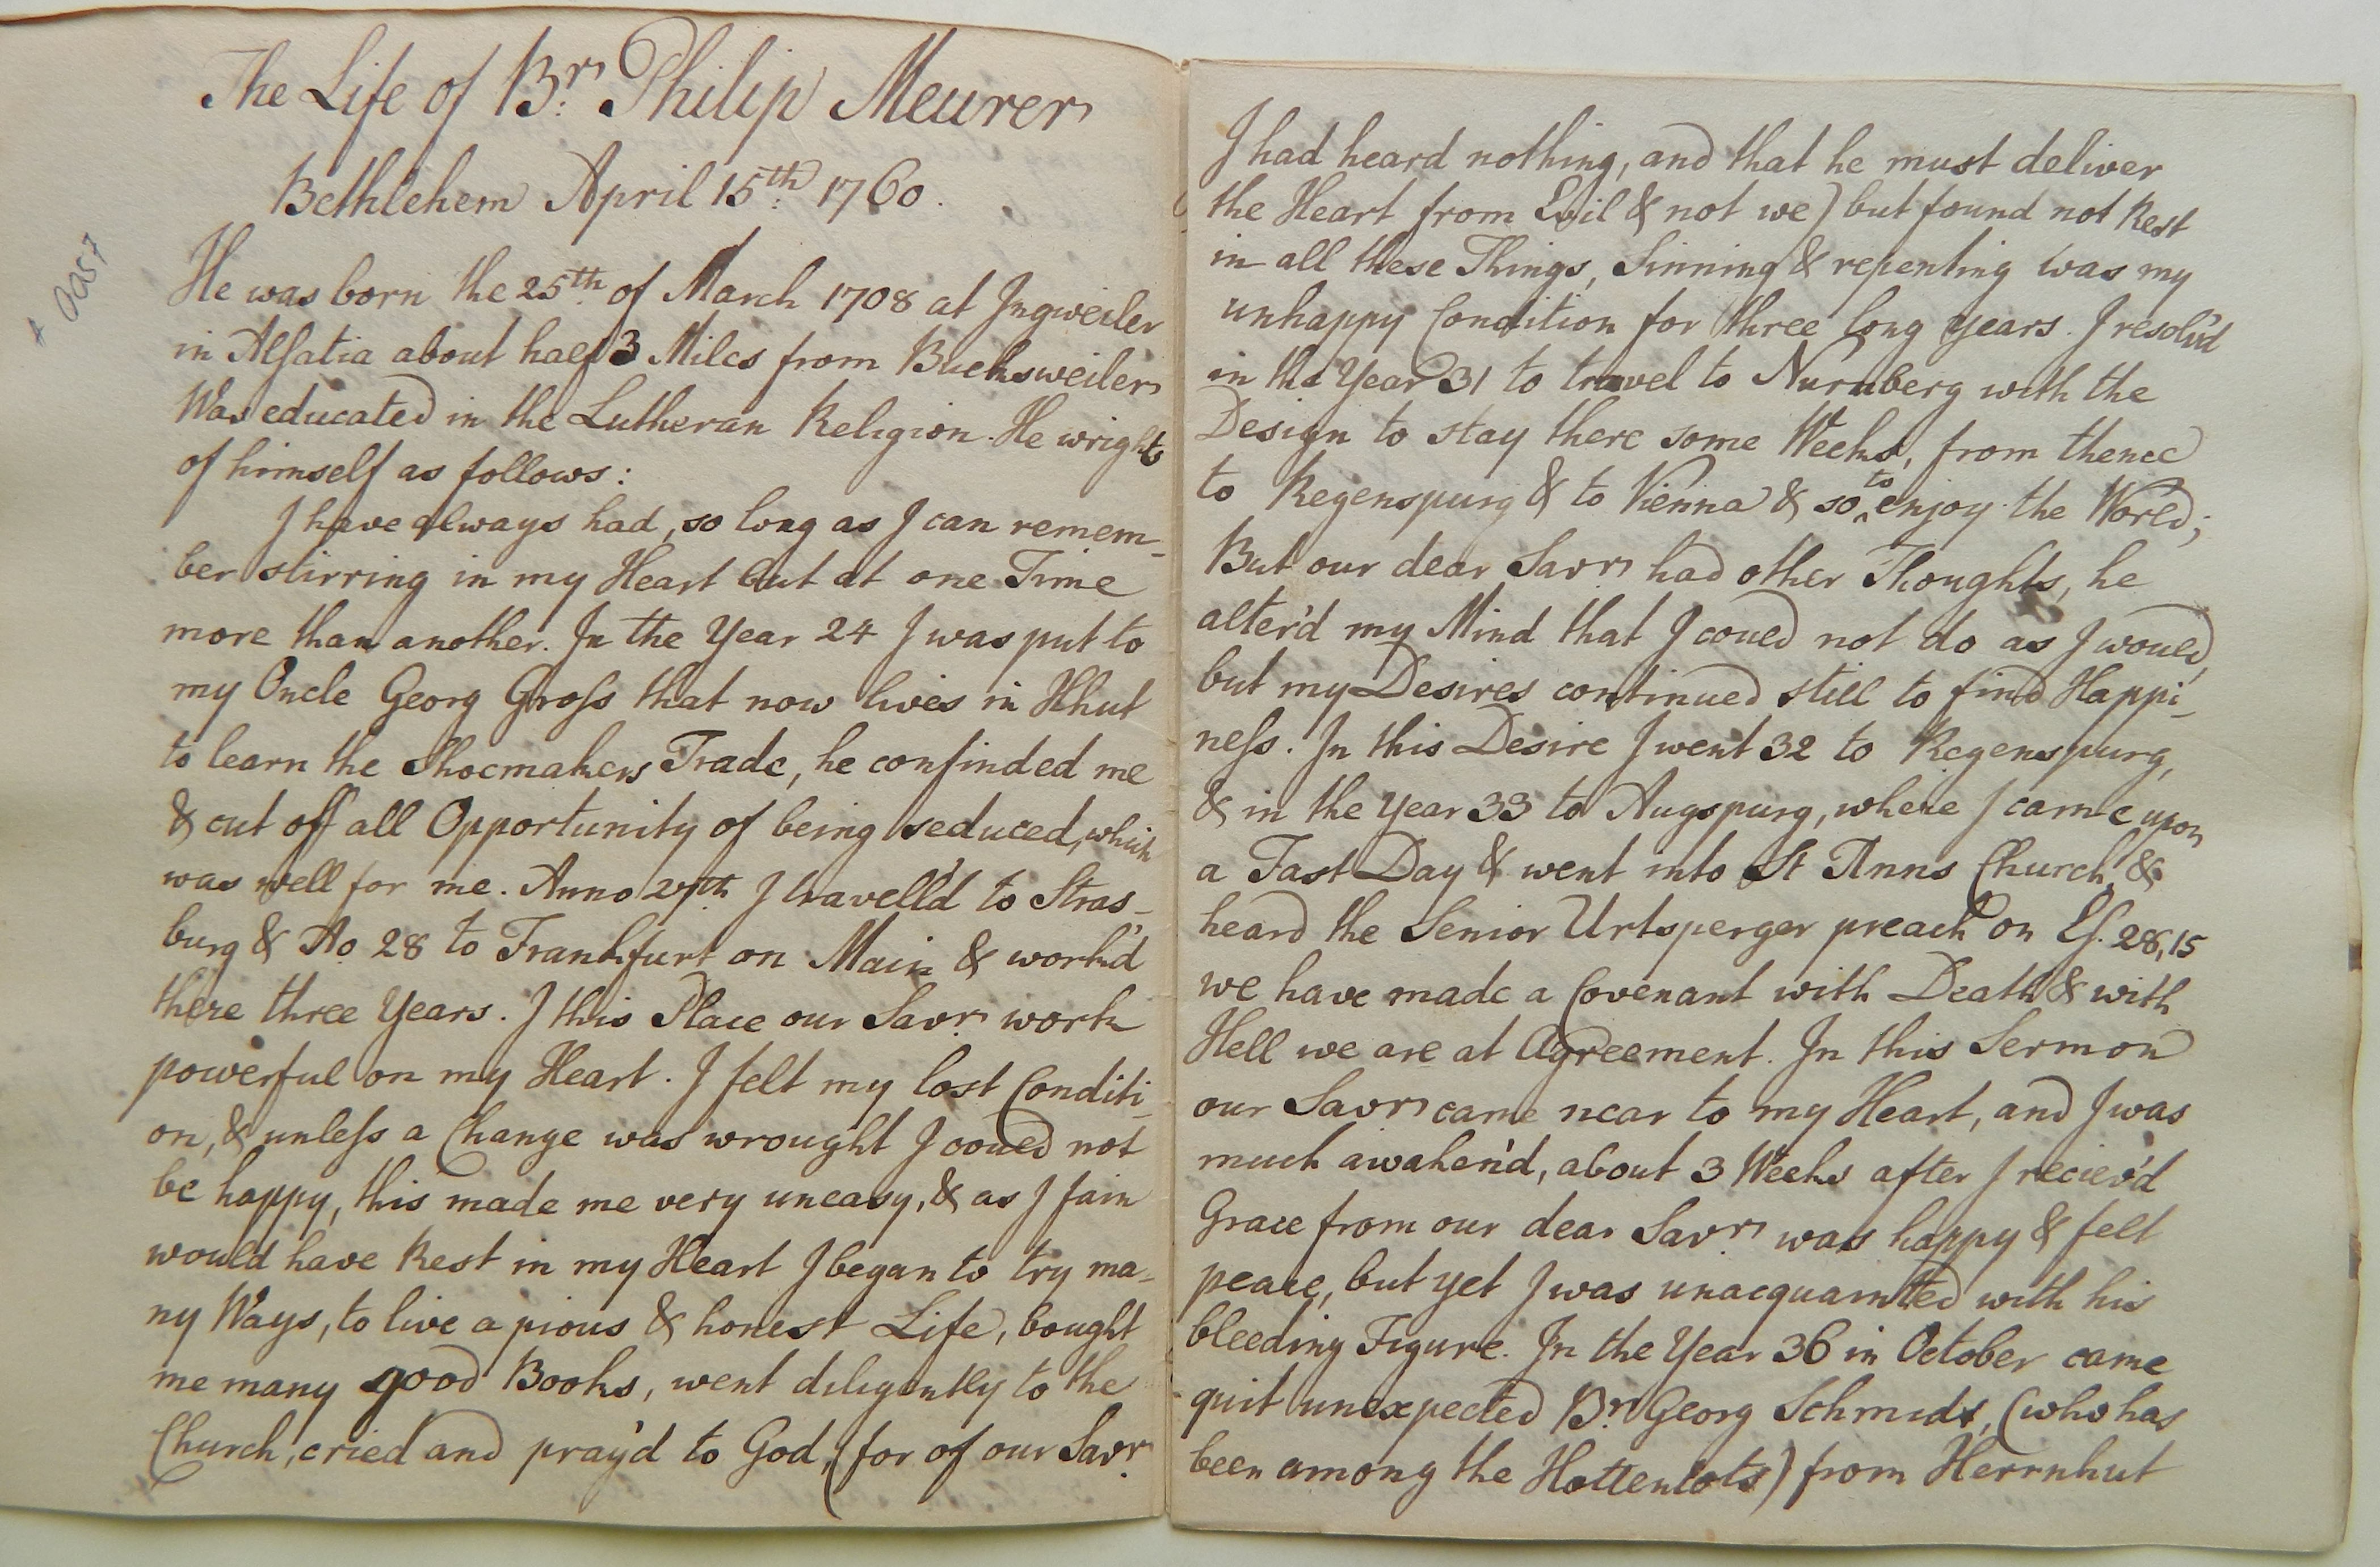 The Life of Br. Philip Meurer
Bethlehem April 15th. 1760.
0057
He was born the 25th. of March 1708 at Ingweiler
in Alsatia about half 3 Miles from Buchsweiler
Was educated in the Lutheran Religion. He wrights
of himself as follows:
I have always had, so long as I can remem-
ber stirring in my Heart but at one Time
more than another. In the Year 24 I was put to
my Oncle Georg Gross that now lives in Hhut
to learn the Shoemakers Trade, he confinded me
& cut off all Opportunity of being seduced, which
was well for me. Anno 27th. I travell'd to Stras-
burg & Ao. 28 to Frankfurt on Main & work'd
there three Years. I this Place our Savr. work
powerful on my Heart. I felt my lost Conditi-
on, & unless a Change was wrought I coued not
be happy, this made me very uneasy, & as I fain
would have Rest in my Heart I began to try ma-
ny Ways, to live a pious & honest Life, bought
me many good Books, went diligently to the
Church, cried and pray'd to God, (for of our Savr.
I had heard nothing, and that he must deliver
the Heart from Evil & not we) but found not Rest
in all these Things, Sinning & repenting was my
unhappy Condition for three long Years. I resolv'd
in the Year 31 to travel to Nurnberg with the
Design to stay there some Weeks, from thence
to Regenspurg & to Vienna & so to enjoy the World;
But our dear Savr. had other Thoughts, he
alter'd my Mind that I coued not do as I woued,
but my Desires continued still to find Happi-
ness. In this Desire I went 32 to Regenspurg,
& in the Year 33 to Augspurg, where I came upon
a Fast Day & went into St Anns Church, &
heard the Senior Urtsperger preach on Es. 28,15
we have made a Covenant with Death & with
Hell we are at Agreement. In this Sermon
our Savr. came near to my Heart, and I was
much awaken'd, about 3 Weeks after I reciev'd
Grace from our dear Savr. was happy & felt
peace, but yet I was unacquainted with his
bleeding Figure. In the Year 36 in October came
quit unexpected Br. Georg Schmidt, (who has
been among the Hottentots) from Herrnhut